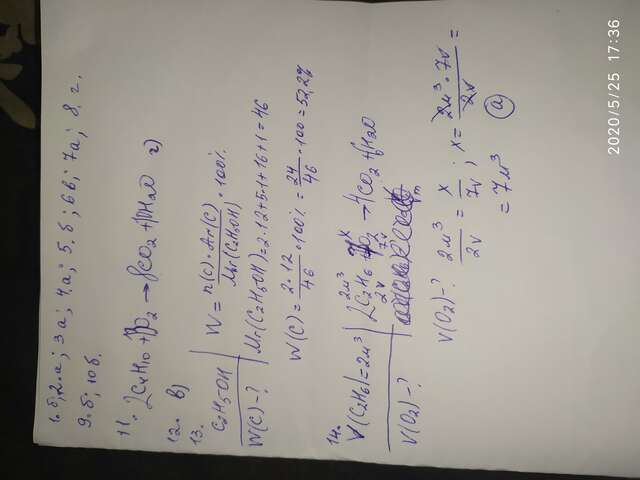 1.б; 2.а; 3а; 4.а; 5.б; 6в; 7а; 8.г.
9.б; 10б.
11. 2C4H10 + 13O2 → 8CO2 + 10H2O г)
12. в)
13.
C2H5OH | W = n(C)·Ar(C) / Mr(C2H5OH) · 100%
W(C)-? | Mr(C2H5OH)=2·12+5·1+16+1=46
W(C) = 2·12 / 46 · 100% = 24 / 46 · 100 = 52,2%
14.
2м³ x
V(C2H6)=2м³ | 2C2H6 + 7O2 → 4CO2 + 6H2O
2v 7v
V(O2)-?
V(O2)-? 2м³ / 2v = x / 7v ; x = 2м³ · 7v / 2v =
= 7м³ а
2020/5/25 17:36